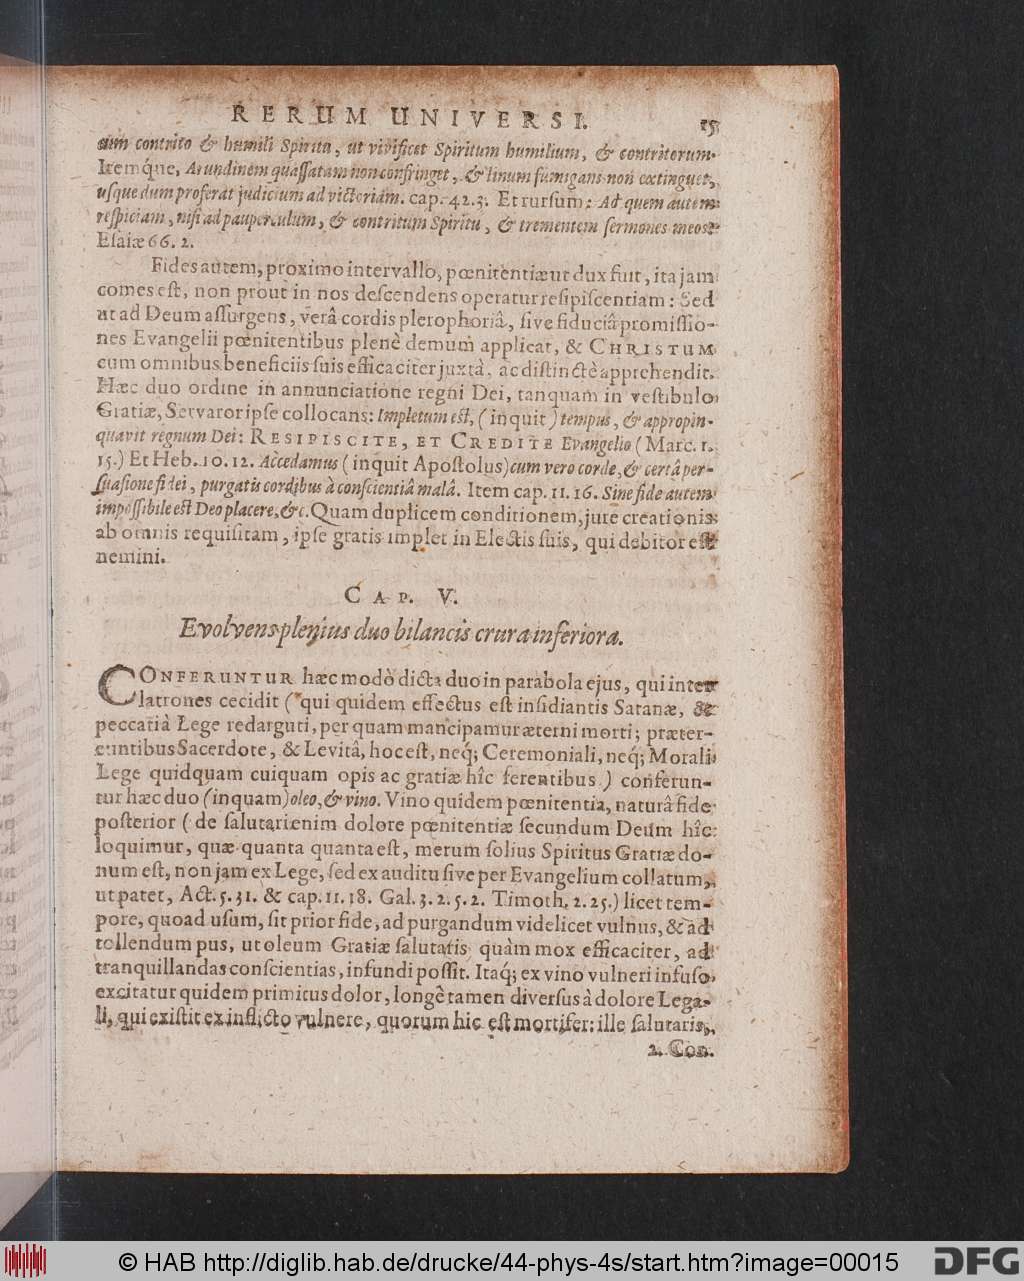 RERUM UNIVERSI. 15
cum contrito & humili Spiritu, ut vivificet Spiritum humilium, & contritorum.
Itemq́ue, Arundinem quaſſatam non confringet, & linum fumigans non extinguet,
uſque dum proferat judicium ad victoriam. cap. 42. 3. Et rurſum: Ad quem autem
reſpiciam, niſi ad pauperculum, & contritum Spiritu, & trementem ſermones meos?
Eſaiæ 66. 2.
Fides autem, proximo intervallo, pœnitentiæ ut dux fuit, ita jam
comes eſt, non prout in nos deſcendens operatur reſipiſcentiam: Sed
ut ad Deum aſſurgens, verâ cordis plerophoriâ, ſive fiduciâ promiſſio-
nes Evangelii pœnitentibus plenè demum applicat, & CHRISTUM
cum omnibus beneficiis ſuis efficaciter juxtà, ac diſtinctè apprehendit.
Hæc duo ordine in annunciatione regni Dei, tanquam in veſtibulo
Gratiæ, Servator ipſe collocans: Impletum est, (inquit) tempus, & appropin-
quavit regnum Dei: RESIPISCITE, ET CREDITE Evangelio (Marc. 1.
15.) Et Heb. 10. 12. Accedamus (inquit Apoſtolus) cum vero corde, & certâ per-
ſuaſione fidei, purgatis cordibus à conſcientiâ malâ. Item cap. 11. 16. Sine fide autem
impoſſibile est Deo placere, &c. Quam duplicem conditionem, jure creationis
ab omnis requiſitam, ipſe gratis implet in Electis ſuis, qui debitor eſt
nemini.
CAP. V.
Evolvens plenius duo bilancis crura inferiora.
CONFERUNTUR hæc modò dicta duo in parabola ejus, qui inter
latrones cecidit (qui quidem effectus eſt inſidiantis Satanæ, &
peccati à Lege redarguti, per quam mancipamur æterni morti; præter-
euntibus Sacerdote, & Levitâ, hoc eſt, neq́; Ceremoniali, neq́; Morali
Lege quidquam cuiquam opis ac gratiæ hîc ferentibus) conferun-
tur hæc duo (inquam) oleo, & vino. Vino quidem pœnitentia, naturâ fide
poſterior (de ſalutari enim dolore pœnitentiæ ſecundum Deum hîc
loquimur, quæ quanta quanta eſt, merum ſolius Spiritus Gratiæ do-
num eſt, non jam ex Lege, ſed ex auditu ſive per Evangelium collatum,
ut patet, Act. 5. 31. & cap. 11. 18. Gal. 3. 2. 5. 2. Timoth. 2. 25.) licet tem-
pore, quoad uſum, ſit prior fide, ad purgandum videlicet vulnus, & ad
tollendum pus, ut oleum Gratiæ ſalutatis quàm mox efficaciter, ad
tranquillandas conſcientias, infundi poſſit. Itaq́; ex vino vulneri infuſo
excitatur quidem primitus dolor, longè tamen diverſus à dolore Lega-
li, qui exiſtit ex inflicto vulnere, quorum hic eſt mortifer: ille ſalutaris,
2. Con.
© HAB http://diglib.hab.de/drucke/44-phys-4s/start.htm?image=00015 DFG